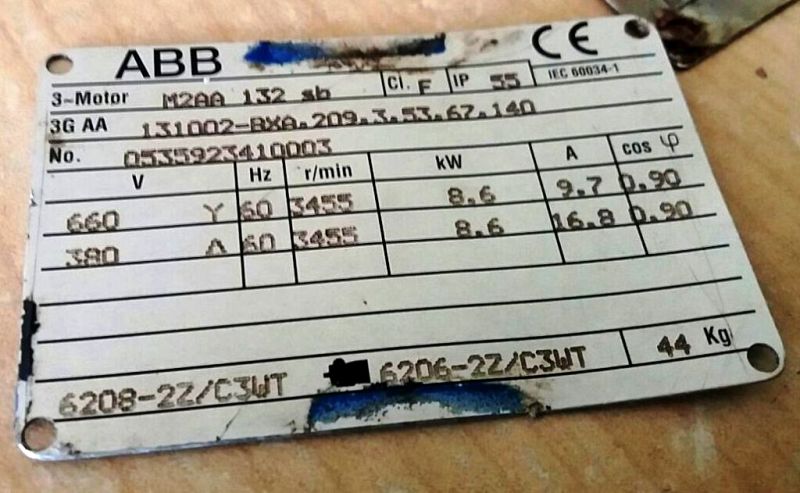 ABB CE
3~Motor M2AA 132 sb Cl. F IP 55 IEC 60034-1
3G AA 131002-BXA.209.3.53.67.140
No. 0535923410003
V Hz r/min kW A cos φ
660 Y 60 3455 8.6 9.7 0.90
380 Δ 60 3455 8.6 16.8 0.90
6208-2Z/C3WT 6206-2Z/C3WT 44 Kg